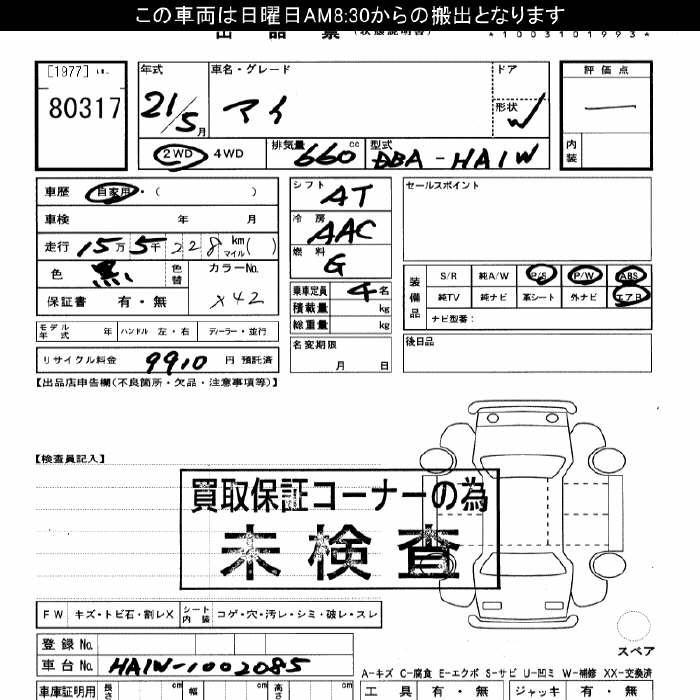 この車両は日曜日AM8:30からの搬出となります
*1003101993*
[1977]
80317
年式 車名・グレード ドア 評価点
21/5月 マイ 形状 W 一
2WD 4WD 排気量 660cc 型式 DBA-HA1W 内装
車歴 自家用・( )
シフト AT
セールスポイント
車検 年 月
冷房 AAC
走行 15万5千228km マイル( )
燃料 G
色 黒 色替 カラーNo. X42
装備品 S/R 純A/W P/S P/W ABS
純TV 純ナビ 革シート 外ナビ エアB
ナビ型番:
保証書 有・無
乗車定員 4名
積載量 kg
総重量 kg
モデル年式 年 ハンドル 左・右 ディーラー・並行
名変期限 月 日
後日品
リサイクル料金 9910 円 預託済
【出品店申告欄(不良箇所・欠品・注意事項等)】
【検査員記入】
買取保証コーナーの為
未検査
FW キズ・トビ石・割レX シート内装 コゲ・穴・汚レ・シミ・破レ・スレ
スペア
登録No.
車台No. HA1W-1002085
A-キズ C-腐食 E-エクボ S-サビ U-凹ミ W-補修 XX-交換済
車庫証明用 長さ cm 幅 cm 高さ cm 工具 有・無 ジャッキ 有・無